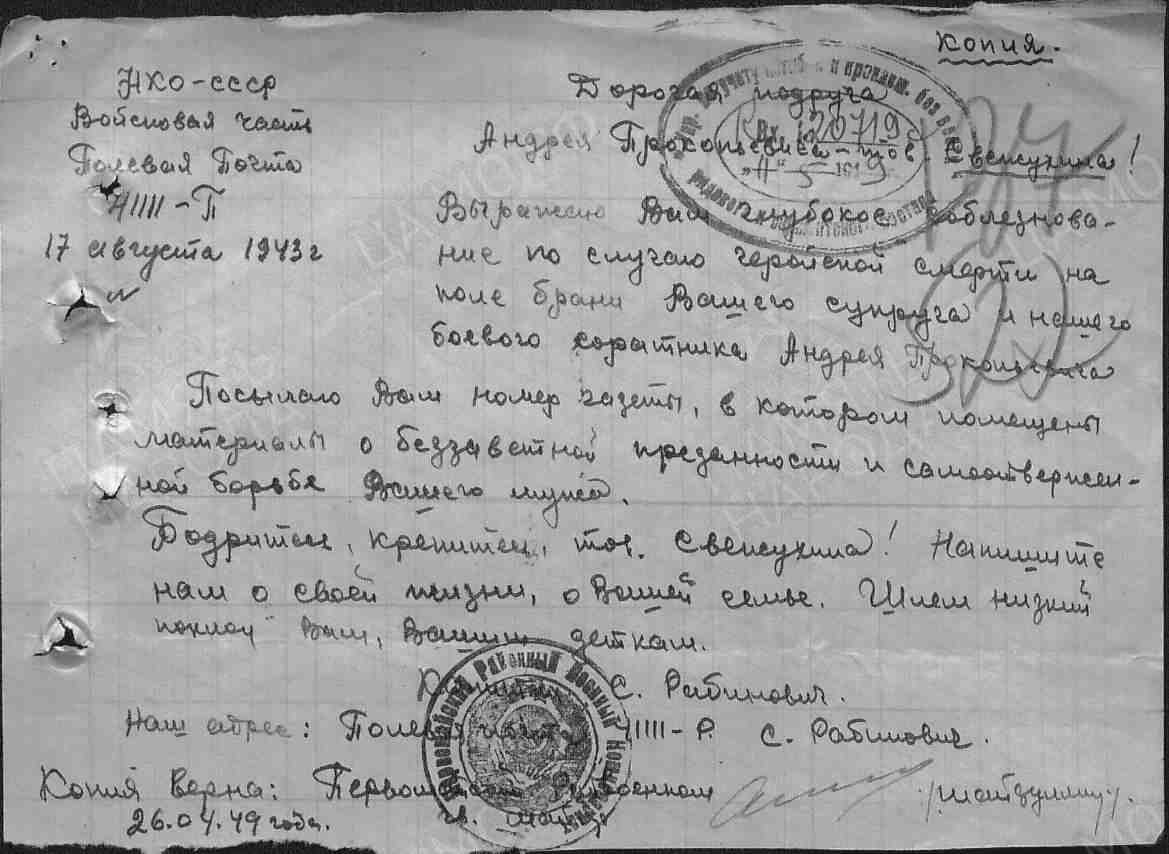 Копия.
НКО-СССР
Войсковая часть
Полевая Почта
41111-П
17 августа 1943 г
Дорогая подруга
Андрея Прокопьевича - тов. Свенсухина!
Выражаю Вам глубокое соболезнова-
ние по случаю геройской смерти на
поле брани Вашего супруга и нашего
боевого соратника Андрея Прокопьевича
Посылаю Вам номер газеты, в котором помещены
материалы о беззаветной преданности и самоотвержен-
ной борьбе Вашего мужа.
Бодритесь, крепитесь, тов. Свенсухина! Напишите
нам о своей жизни, о Вашей семье. Шлем низкий
поклон Вам, Вашим деткам.
Капитан С. Рабинович.
Наш адрес: Полевая почта 41111-Р С. Рабинович.
Копия верна: Первомайский Райвоенком
гв. майор
26.04.49 года.
Вх. 20719
Районный Военный